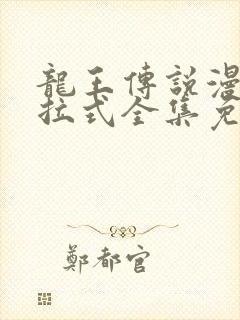 龍王傳說漫
拉式全集免
鄭都官